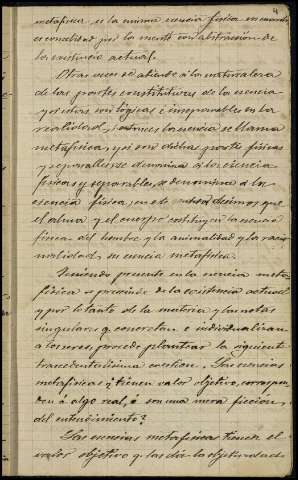 4
metafisica es la misma esencia fisica en cuanto
es concebida por la mente con abstracción de
la existencia actual.
Otras veces se atiende á la naturaleza
de las partes constitutivas de la esencia
y si estas son lógicas é inseparables en la
realidad, entonces la esencia se llama
metafisica, y si son dichas partes fisicas
y separables se denomina á la esencia
fisicas y separables, se denomina á la
esencia fisica, en este sentido decimos que
el alma y el cuerpo constituyen la esencia
fisica del hombre y la animalidad y la racio
nalidad, su esencia metafisica.
Teniendo presente en la esencia meta
fisica se prescinde de la existencia actual
y por lo tanto de la materia y las notas
singulares q. concretan é individualizan
á los seres, procede plantear la siguiente
trascendentalisima cuestion. ¿Las esencias
metafisicas tienen valor objetivo, correspon
den á algo real, ó son una mera ficción
del entendimiento?
Las esencias metafisicas tienen el
valor objetivo q. les dá la objetividad